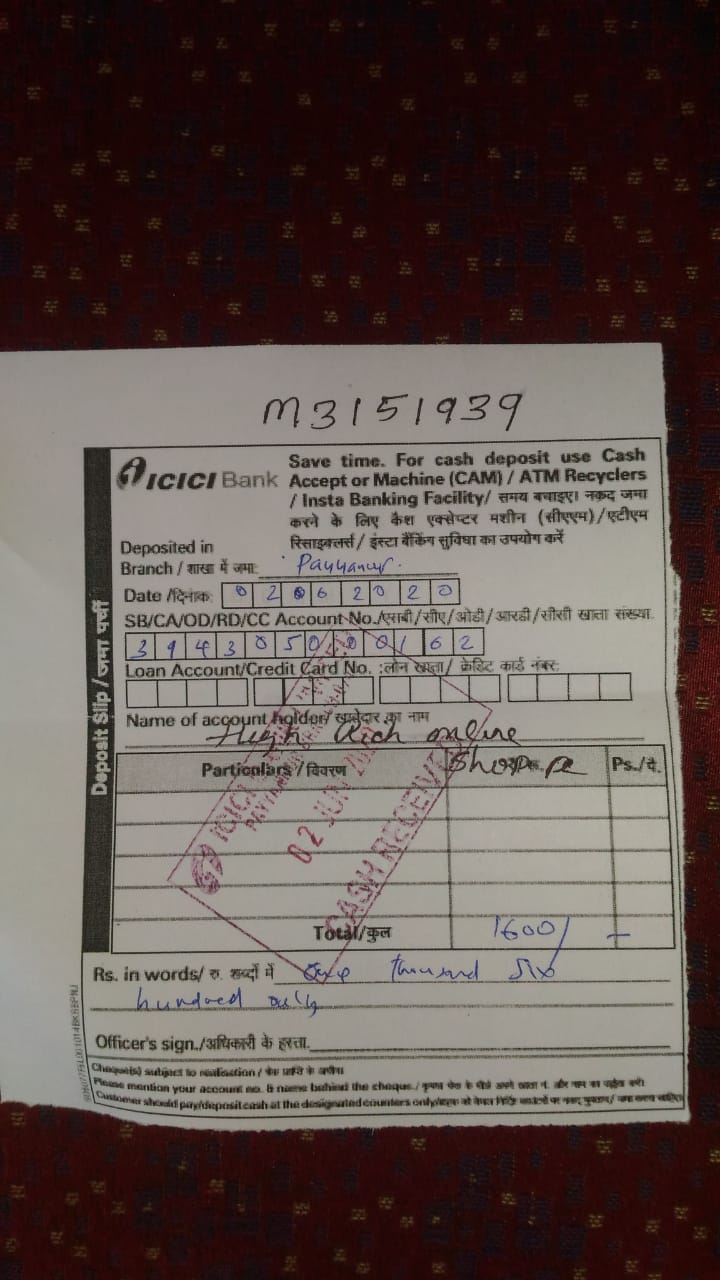 M3151939
ICICI Bank
Save time. For cash deposit use Cash
Accept or Machine (CAM) / ATM Recyclers
/ Insta Banking Facility/ समय बचाइए। नकद जमा
करने के लिए कैश एक्सेप्टर मशीन (सीएएम)/एटीएम
रिसाइक्लर्स/ इंस्टा बैंकिंग सुविधा का उपयोग करें
Deposited in
Branch / शाखा में जमा: Payyanur
Date /दिनांक: 02 06 2020
SB/CA/OD/RD/CC Account No./एसबी/सीए/ओडी/आरडी/सीसी खाता संख्या.
394305000162
Loan Account/Credit Card No. :लोन खाता/ क्रेडिट कार्ड नंबर:
Name of account holder/ खातेदार का नाम
High Rich online
Particulars / विवरण Shoppe Ps./पै.
Total/कुल 1600/-
Rs. in words/ रु. शब्दों में One thousand six
hundred only
Officer's sign./अधिकारी के हस्ता.
Cheque(s) subject to realisation /
Please mention your account no. & name behind the cheque./
Customer should pay/deposit cash at the designated counters only/
Deposit Slip / जमा पर्ची
ICICI
02 JUN
CASH RECEIVED